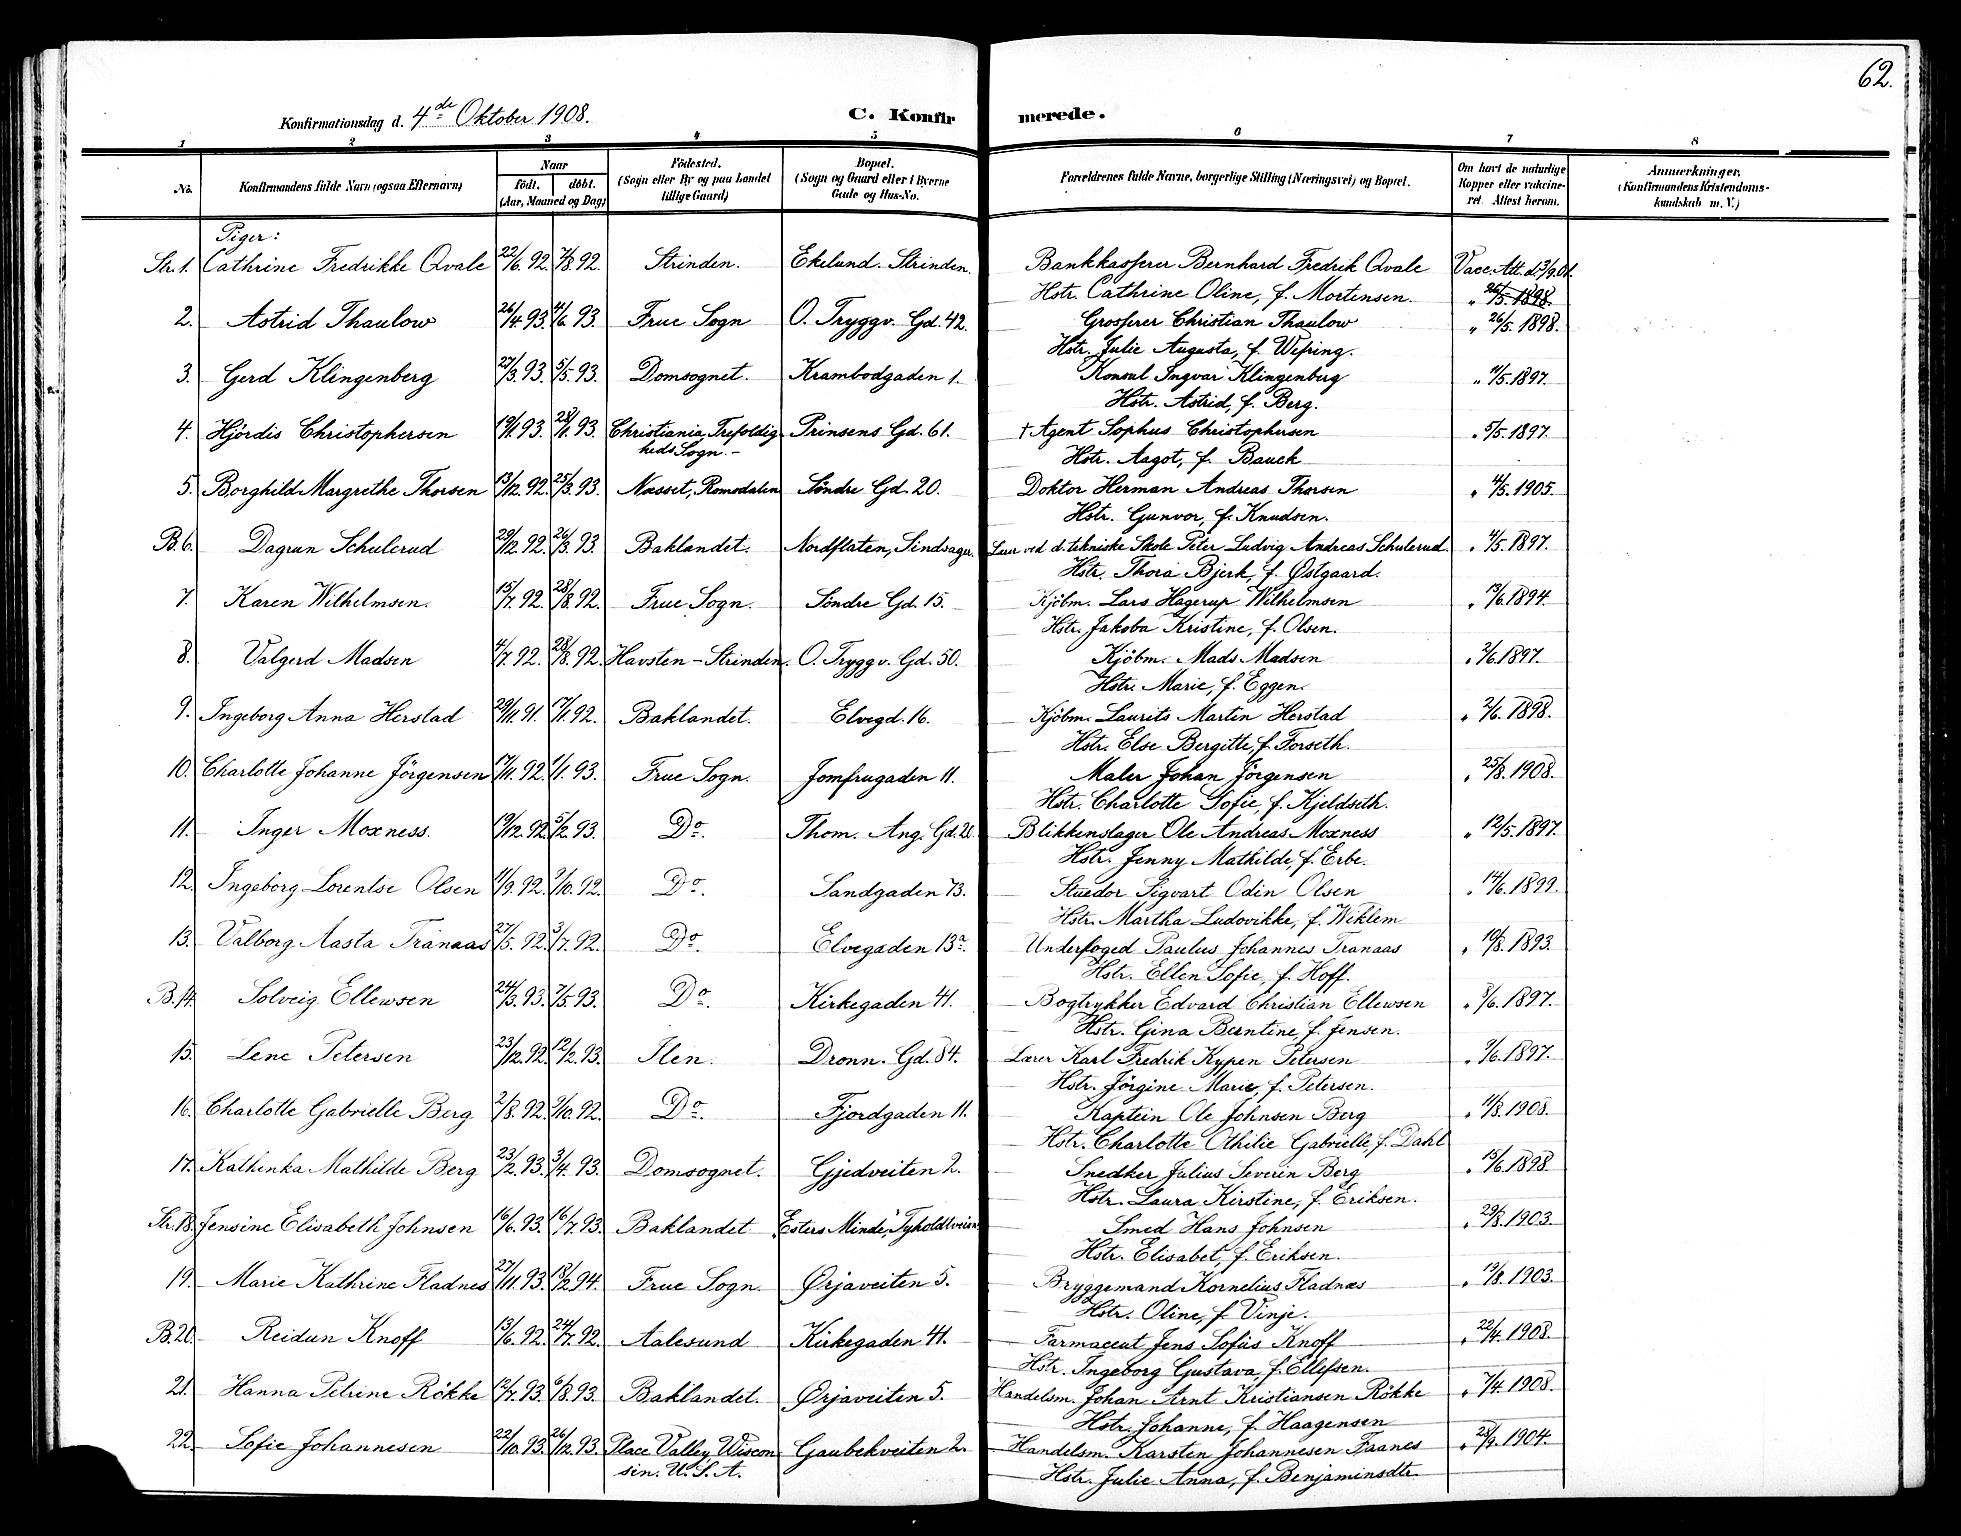 62.
Konfirmationsdag d. 4de Oktober 1908.
C. Konfirmerede.
1 2 3 4 5 6 7 8
No. Konfirmandens fulde Navn (ogsaa Efternavn) Naar födt. döbt. (Aar, Maaned og Dag) Födested. (Sogn eller By og paa Landet tillige Gaard) Bopæl. (Sogn og Gaard eller i Byerne Gade og Hus-No. Forældrenes fulde Navne, borgerlige Stilling (Næringsvei) og Bopæl. Om havt de naturlige Kopper eller vakcineret. Attest herom. Anmærkninger. (Konfirmandens Kristendomskundskab m. V.)
Piger:
Str. 1. Cathrine Fredrikke Qvale 22/6 92. 7/8 92. Strinden. Ekelund. Strinden. Bankkasserer Bernhard Fredrik Qvale Vacc. Att. d. 3/9 01.
Hstr. Cathrine Oline, f. Mortensen. " 26/5 1898.
2. Astrid Thaulow 26/4 93. 4/6 93. Frue Sogn O. Tryggv. Gd. 42. Grosserer Christian Thaulow " 26/5 1898.
Hstr. Julie Augusta, f. Wesring.
3. Gerd Klingenberg 27/3 93. 5/5 93. Domsognet. Krambodgaden 1. Konsul Ingvar Klingenberg " 11/5 1897.
Hstr. Astrid, f. Berg.
4. Hjördis Christophersen 19/1 93. 28/1 93. Christiania, Trefoldig- Prinsens Gd. 61. † Agent Sophus Christophersen " 5/5 1897.
heds Sogn. Hstr. Aagot, f. Bauck
5. Borghild Margrethe Thorsen 13/12 92. 25/3 93. Næsset, Romsdalen Söndre Gd. 20. Doktor Herman Andreas Thorsen " 4/5 1905.
Hstr. Gunvor, f. Knudsen.
B. 6. Dagrun Schulerud 29/12 92. 26/3 93. Baklandet. Nordflaten, Sindsager. Lærer ved d. tekniske Skole Peter Ludvig Andreas Schulerud. " 4/5 1897.
Hstr. Thora Bjerk, f. Østgaard.
7. Karen Wilhelmsen. 15/7 92. 28/8 92. Frue Sogn. Söndre Gd. 15. Kjöbm. Lars Hagerup Wilhelmsen " 13/6 1894.
Hstr. Jakoba Kristine, f. Olsen.
8. Valgerd Madsen 4/7 92. 28/8 92. Havsten - Strinden. O. Tryggv. Gd. 50. Kjöbm. Mads Madsen " 2/6 1897.
Hstr. Marie, f. Eggen.
9. Ingeborg Anna Herstad 29/11 91. 17/1 92. Baklandet. Elvegd. 16. Kjöbm. Laurits Martin Herstad " 2/6 1898.
Hstr. Else Bergitte, f. Forseth.
10. Charlotte Johanne Jörgensen 17/11 92. 1/1 93. Frue Sogn. Jomfrugaden 11. Maler Johan Jörgensen " 25/8 1908.
Hstr. Charlotte Sofie, f. Kjeldseth.
11. Inger Moxness. 19/12 92. 5/2 93. Do. Thom. Ang. Gd. 20. Blikkenslager Ole Andreas Moxness " 12/5 1897.
Hstr. Jenny Mathilde, f. Erbe.
12. Ingeborg Lorentse Olsen 11/9 92. 9/10 92. Do. Sandgaden 73. Stuedor Sigvart Odin Olsen " 14/6 1899.
Hstr. Martha Ludovikke, f. Wiklem
13. Valborg Aasta Tranaas 27/5 92. 3/7 92. Do. Elvegaden 13a. Underfoged Paulus Johannes Tranaas " 10/8 1893.
Hstr. Ellen Sofie, f. Hoff.
B. 14. Solveig Ellewsen 24/3 93. 7/5 93. Do. Kirkegaden 41. Bogtrykker Edvard Christian Ellewsen " 8/6 1897.
Hstr. Gina Berntine, f. Jensen.
15. Lene Petersen 23/12 92. 12/2 93. Ilen. Dronn. Gd. 84. Lærer Karl Fredrik Kypen Petersen " 9/6 1897.
Hstr. Jörgine Marie, f. Petersen.
16. Charlotte Gabrielle Berg 2/8 92. 9/10 92. Do. Fjordgaden 11. Kaptein Ole Johnsen Berg " 11/8 1908.
Hstr. Charlotte Othilie Gabrielle, f. Dahl
17. Kathinka Mathilde Berg 23/2 93. 3/4 93. Domsognet. Gjedveiten 2. Snedker Julius Severin Berg " 15/6 1898.
Hstr. Laura Kirstine, f. Eriksen.
Str. 18. Jensine Elisabeth Johnsen 16/6 93. 16/7 93. Baklandet "Esters Minde," Tyholdtveien Smed Hans Johnsen " 29/8 1903.
Hstr. Elisabet, f. Eriksen.
19. Marie Kathrine Fladnes 27/11 93. 18/2 94. Frue Sogn. Ørjaveiten 5. Bryggemand Kornelius Fladnæs " 19/8 1903.
Hstr. Oline, f. Vinje.
B. 20. Reidun Knoff 13/6 92. 24/7 92. Aalesund Kirkegaden 41. Farmaceut Jens Sofus Knoff " 22/4 1908.
Hstr. Ingeborg Gustava, f. Ellefsen.
21. Hanna Petrine Rökke 12/7 93. 6/8 93. Baklandet. Ørjaveiten 5. Handelsm. Johan Arnt Kristiansen Rökke " 7/4 1908.
Hstr. Johanne, f. Haagensen
22. Sofie Johannesen 22/10 93. 26/12 93. Place Valley Wiscon- Gaubekveiten 2. Handelsm. Karsten Johannesen Franes " 23/9 1904.
sin. U. S. A. Hstr. Julie Anna, f. Benjaminsdtr.